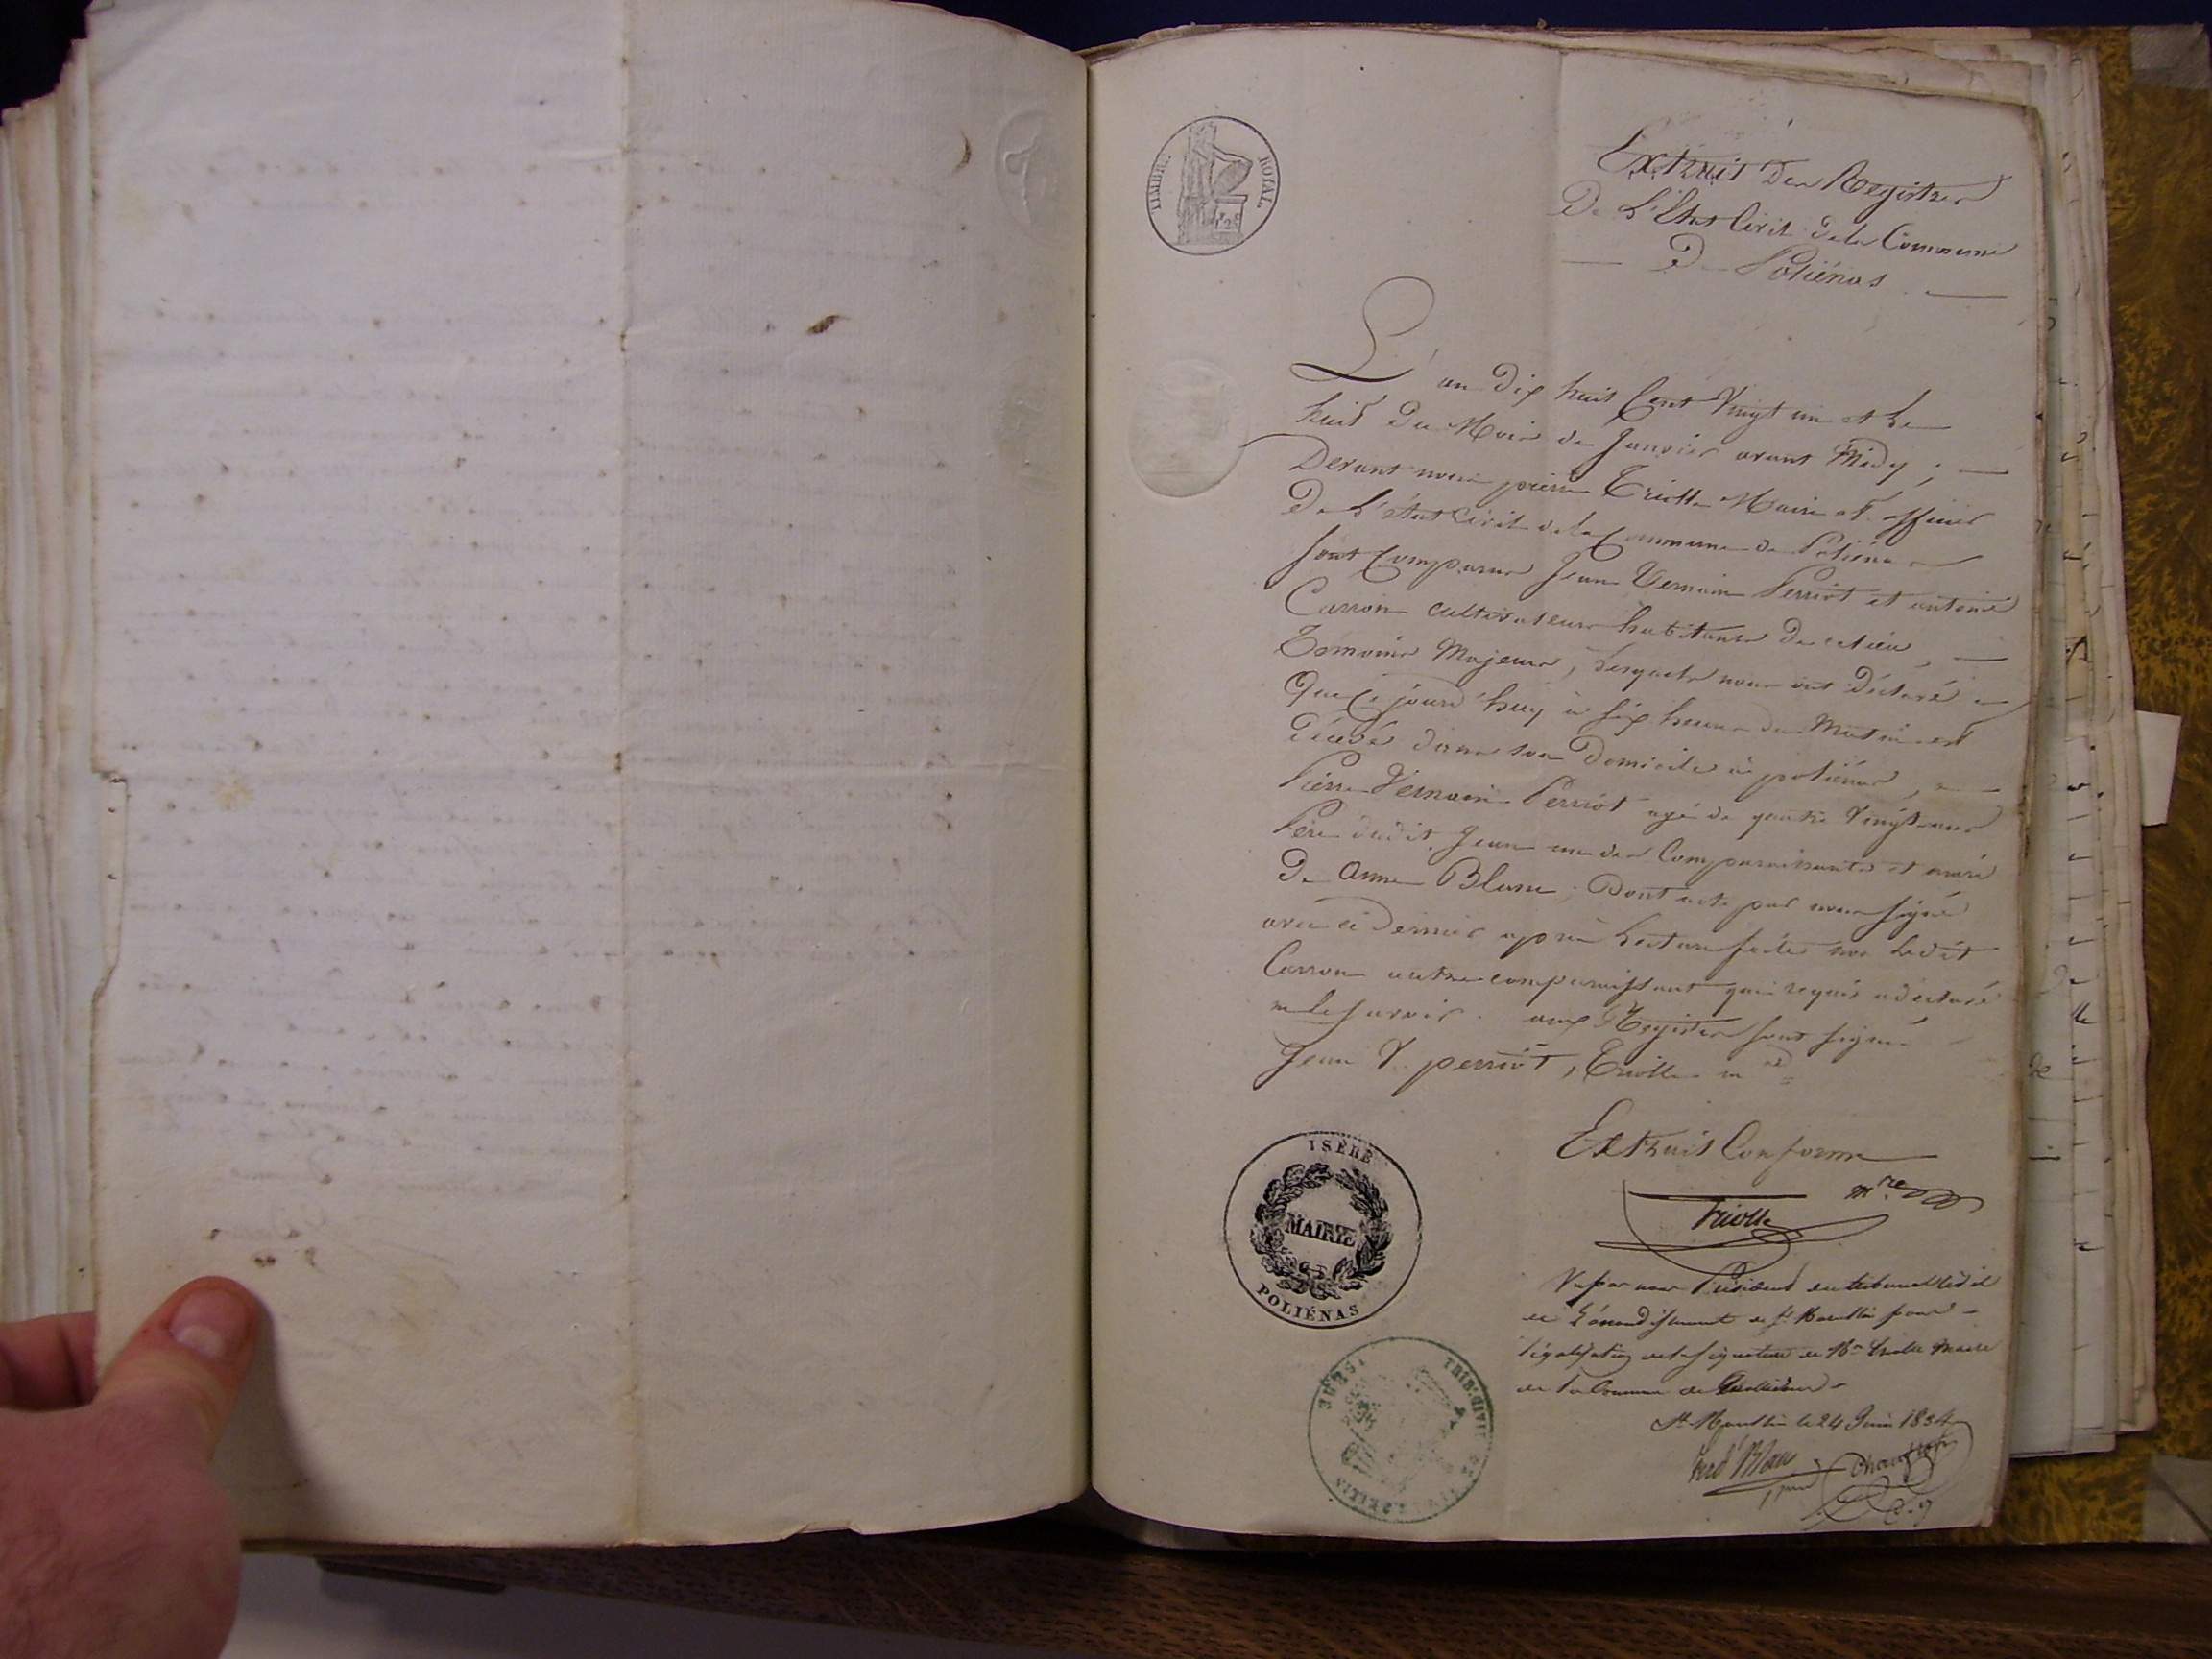 TIMBRE ROYAL
1.25
Extrait Des Registres
De L'Etat Civil de la Commune
De Poliénas
L'an Dix huit Cent Vingt un et Le
huit Du Mois de Janvier avant Midy ;
Devant nous pierre Triolle Maire et officier
De L'état Civil de la Commune de Poliénas
sont Comparus Jean Vernain Perriot et antoine
Carron cultivateurs habitants De ce lieu,
Témoins Majeurs, Lesquels nous ont Déclaré
Que Ce jourd'huy à six heures du Matin est
Décédé dans son Domicile à poliénas,
Pierre Vernain Perriot agé de quatre Vingt ans
Père dudit Jean un des Comparaissants et mari
De Anne Blanc ; Dont acte par nous signé
avec ce Dernier après Lecture faite non Ledit
Carron autre comparaissant qui requis a déclaré
ne le savoir. aux Registres sont signés
Jean V. perriot, Triolle m re
Extrait Conforme
Triolle m.re
ISÈRE
MAIRIE
POLIÉNAS
Vu par nous Président du tribunal Civil
de L'arrondissement de St Marcellin pour
légalisation de la signature de Mr Triolle Maire
de la Commune de
St Marcellin le 24 Juin 1834
TRIB. CIVIL
ISERE